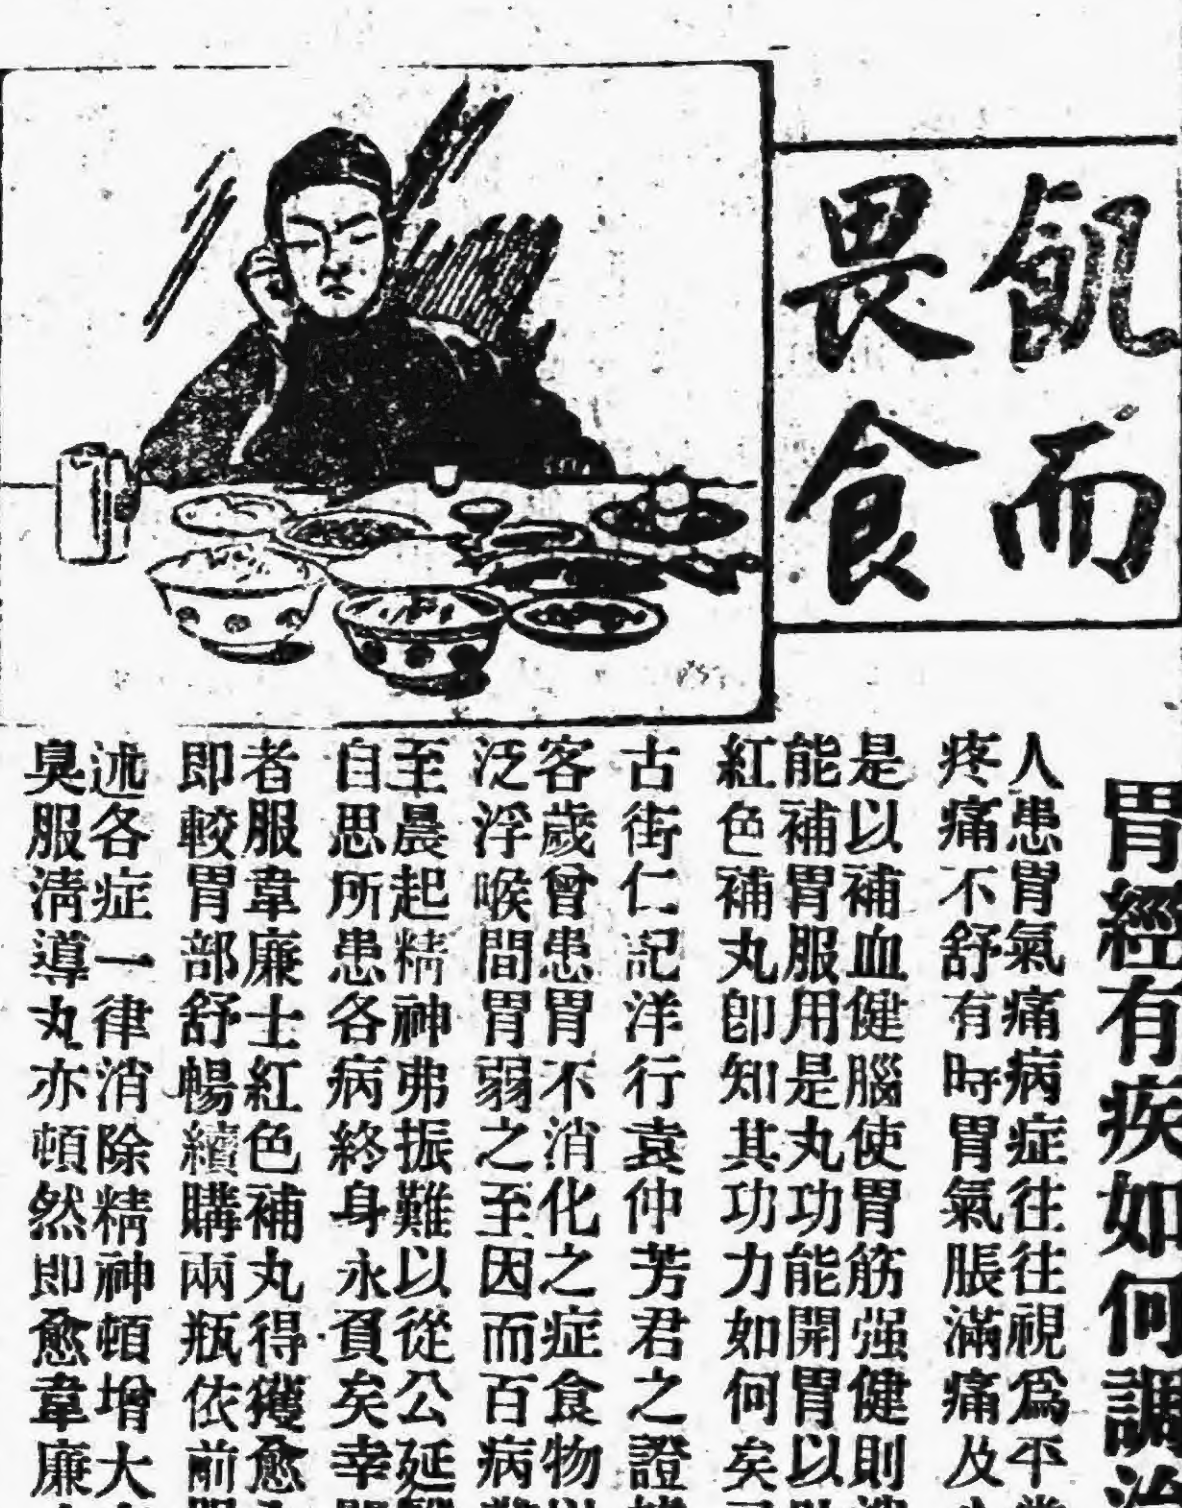 飢而
畏食
胃經有疾如何調治
人患胃氣痛病症往往視爲平
疼痛不舒有時胃氣脹滿痛及
是以補血健腦使胃筋强健則
能補胃服用是丸功能開胃以
紅色補丸卽知其功力如何矣
古街仁記洋行袁仲芳君之證
客歲曾患胃不消化之症食物
泛浮喉間胃弱之至因而百病
至晨起精神弗振難以從公延
自思所患各病終身永負矣幸
者服韋廉士紅色補丸得獲愈
即較胃部舒暢續購兩瓶依前
述各症一律消除精神頓增大
臭服淸導丸亦頓然即愈韋廉